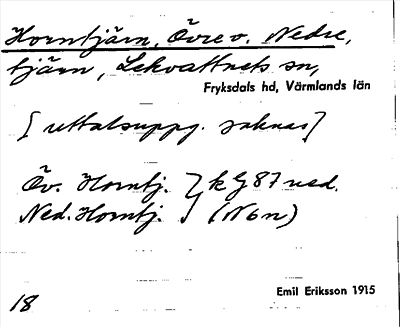 Horntjärn, Övre o. Nedre,
tjärn, Lekvattnets sn,
Fryksdals hd, Värmlands län
[uttalsuppg. saknas]
Öv. Horntj. } k G 87 ned.
Ned. Horntj. } (N 6 n)
18
Emil Eriksson 1915